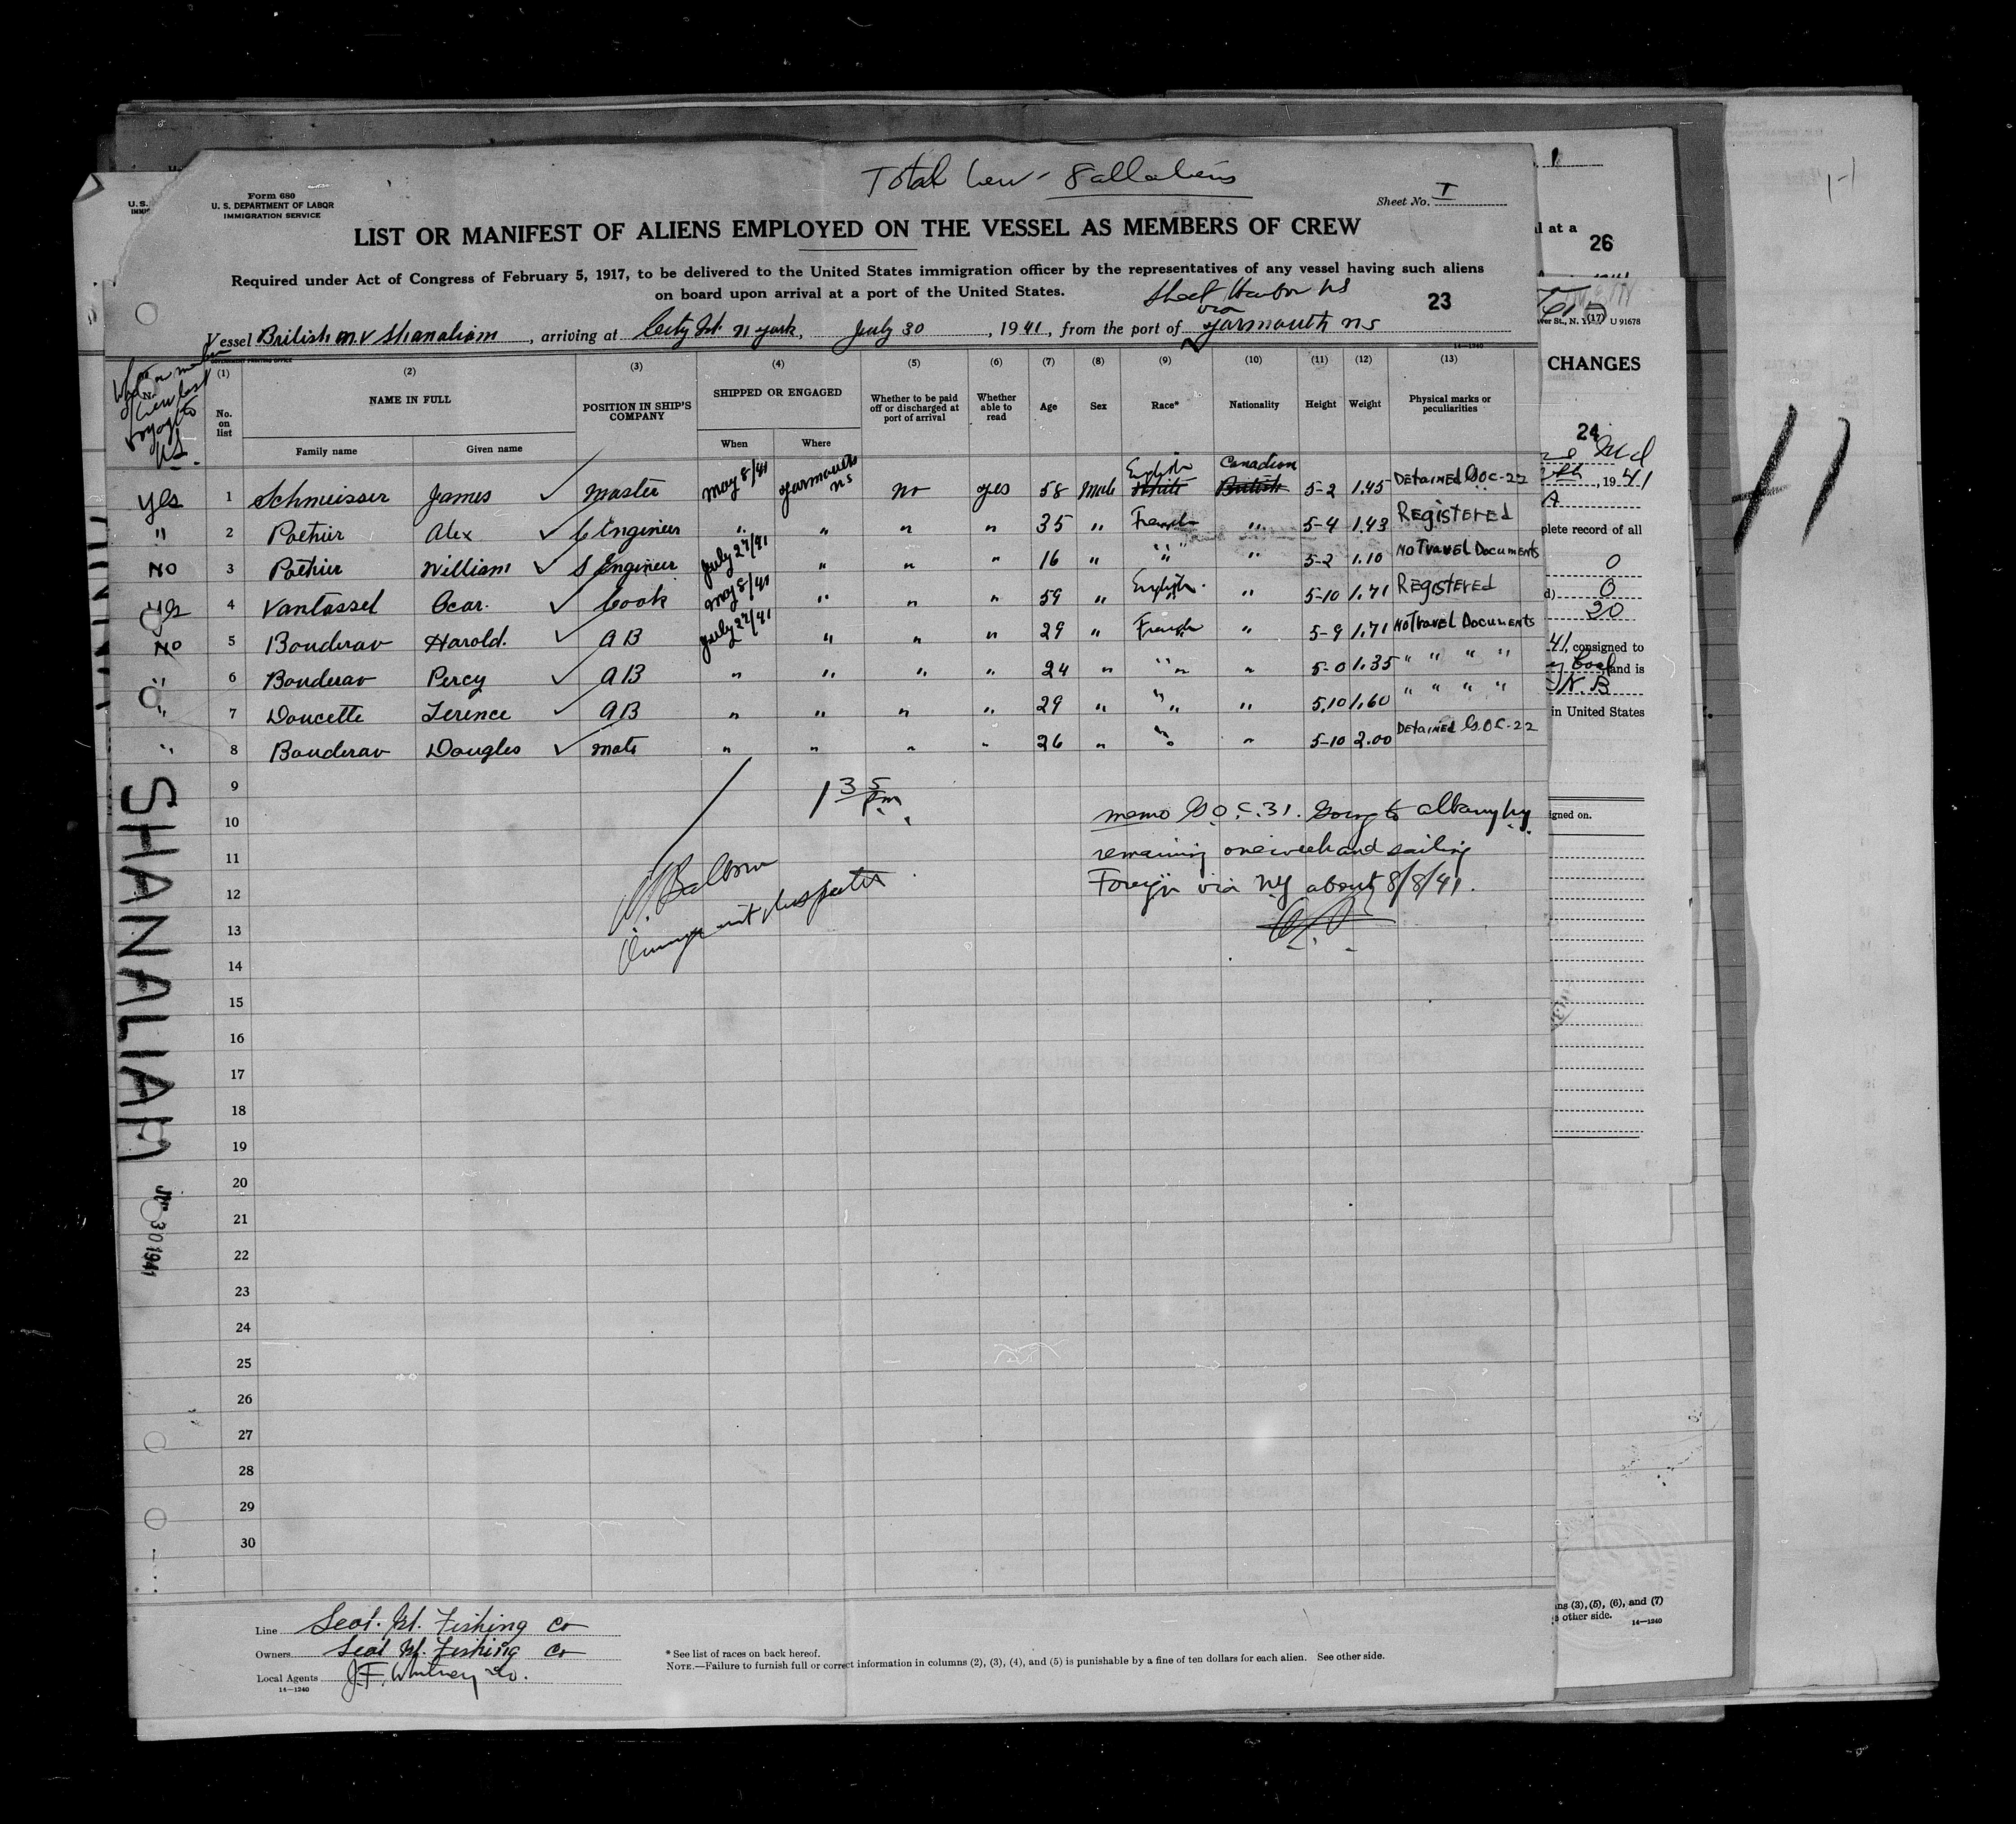 Total Crew - 8 all aliens
Form 680
U. S. DEPARTMENT OF LABOR
IMMIGRATION SERVICE
Sheet No. I
LIST OR MANIFEST OF ALIENS EMPLOYED ON THE VESSEL AS MEMBERS OF CREW
Required under Act of Congress of February 5, 1917, to be delivered to the United States immigration officer by the representatives of any vessel having such aliens
on board upon arrival at a port of the United States.
Sheet Harbor NS
via
23
Vessel British M.V Shanaliam, arriving at City Isl. N York, July 30, 1941, from the port of Yarmouth NS
(1) (2) (3) (4) (5) (6) (7) (8) (9) (10) (11) (12) (13)
No. on list
NAME IN FULL
Family name Given name
POSITION IN SHIP'S COMPANY
SHIPPED OR ENGAGED
When Where
Whether to be paid off or discharged at port of arrival
Whether able to read
Age Sex Race* Nationality Height Weight
Physical marks or peculiarities
English Canadian
yes 1 Schmuisser James ✓ Master May 8/41 Yarmouth NS no yes 58 Male White British 5-2 1.45 Detained G.O.C-22
" 2 Pothier Alex ✓ C Engineer " " " " 35 " French " 5-4 1.43 Registered
No 3 Pothier William ✓ S Engineer July 27/41 " " " 16 " " " 5-2 1.10 No Travel Documents
yes 4 Vantassel Ocar. ✓ Cook May 8/41 " " " 59 " English " 5-10 1.71 Registered
No 5 Bouderav Harold. ✓ AB July 27/41 " " " 29 " French " 5-9 1.71 No Travel Documents
" 6 Bouderav Percy ✓ AB " " " " 24 " " " 5-0 1.35 " " " "
" 7 Doucette Terence ✓ AB " " " " 29 " " " 5.10 1.60 " " " "
" 8 Bouderav Douglas ✓ Mate " " " " 26 " " " 5-10 2.00 Detained G.O.C-22
9
1 35 Pm.
10
memo G.O.C.31. Going to Albany NY
11
remaining one week and sailing
12
Foreign via NY about 8/8/41.
13
Immigrant Inspector
14
15
16
17
18
19
20
21
22
23
24
25
26
27
28
29
30
SHANALIAM
30 1941
Line Seal Isl. Fishing Co
Owners Seal Isl. Fishing Co
Local Agents J.F. Whitney Co.
14—1240
* See list of races on back hereof.
NOTE.—Failure to furnish full or correct information in columns (2), (3), (4), and (5) is punishable by a fine of ten dollars for each alien. See other side.
U.S.
at a
26
(17) U 91678
CHANGES
24
Md
, 1941
plete record of all
0
0
20
41, consigned to
and is
N.B
in United States
igned on.
ns (3), (5), (6), and (7)
other side.
14—1240
41